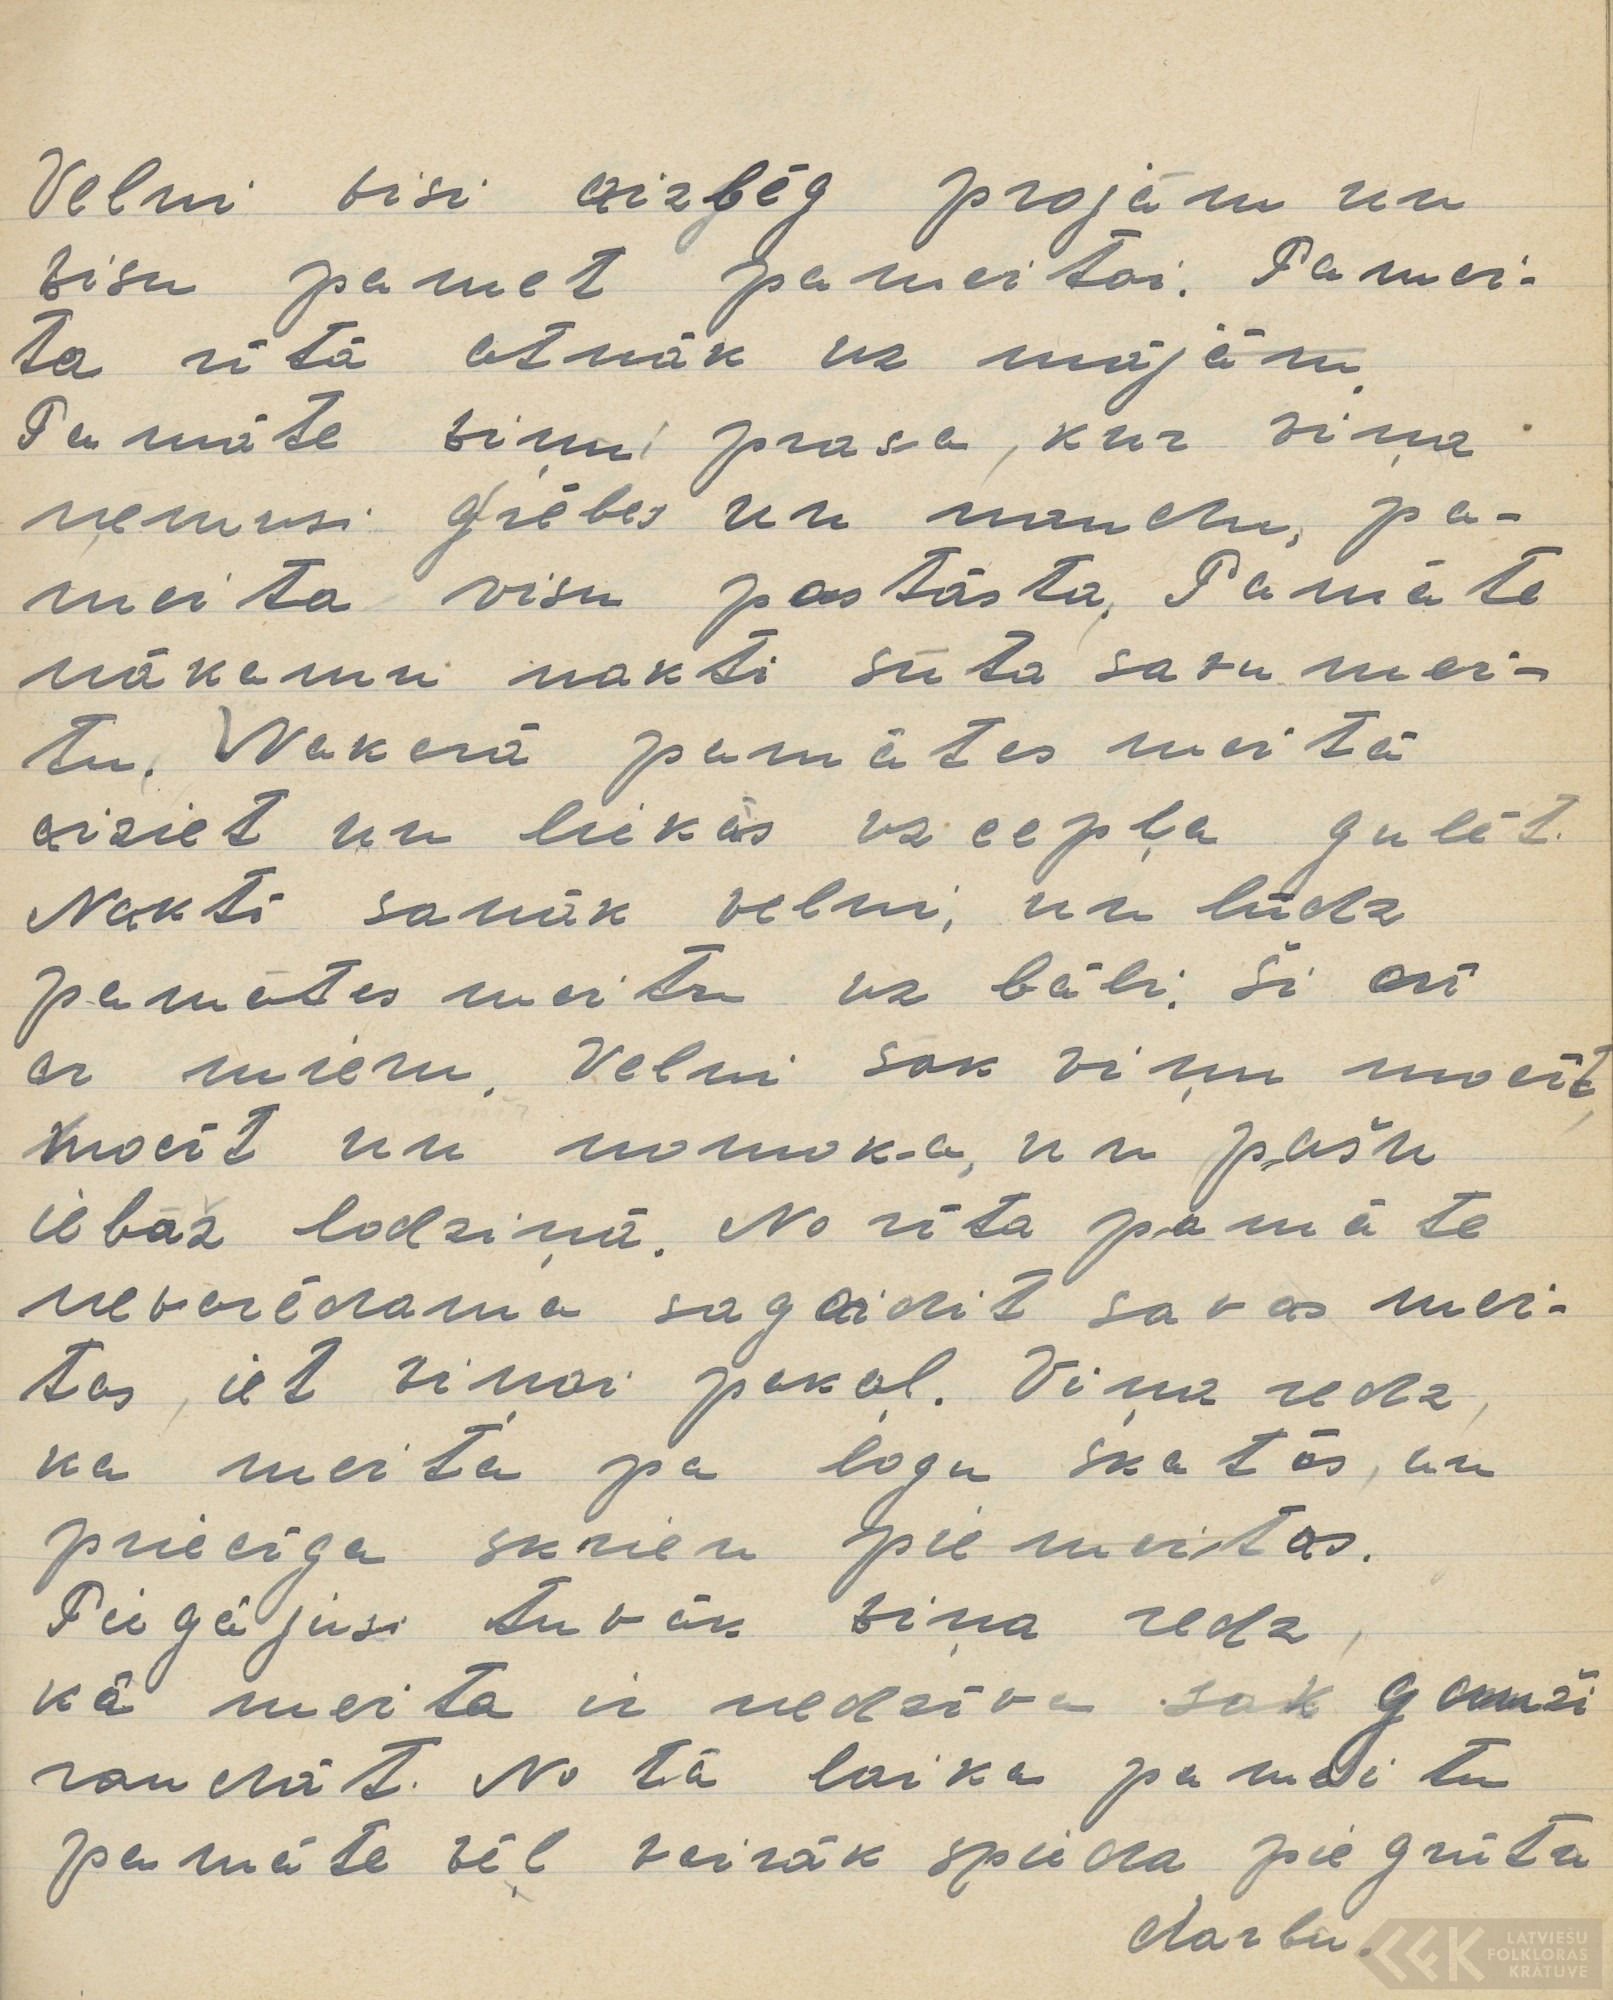 Velni visi aizbēg projām un
visu pamet pameitai. Pamei-
ta rītā atnāk uz mājām.
Pamāte viņu prasa, kur viņa
ņemusi drēbes un naudu, pa-
meita visu pastāsta. Pamāte
nākamu nakti sūta savu mei-
tu. Vakarā pamātes meitā
aiziet un liekās uz cepļa gulēt.
Naktī sanāk velni, un lūdz
pamātes meitu uz bāli. Šī arī
ar mieru. Velni sāk viņu mocīt,
mocīt un nomoka, un pašu
iebāz lodziņā. No rīta pamāte
nevarēdama sagaidīt savas mei-
tas, iet viņai pakaļ. Viņa redz,
ka meita pa logu skatās, un
priecīga skrien pie meitas.
Piegājusi tuvāk viņa redz,
kā meita ir nedzīva sāk gauži
raudāt. No tā laika pameitu
pamāte vēļ vairāk spieda pie grūta
darbu.
LATVIEŠU
FOLKLORAS
KRĀTUVE